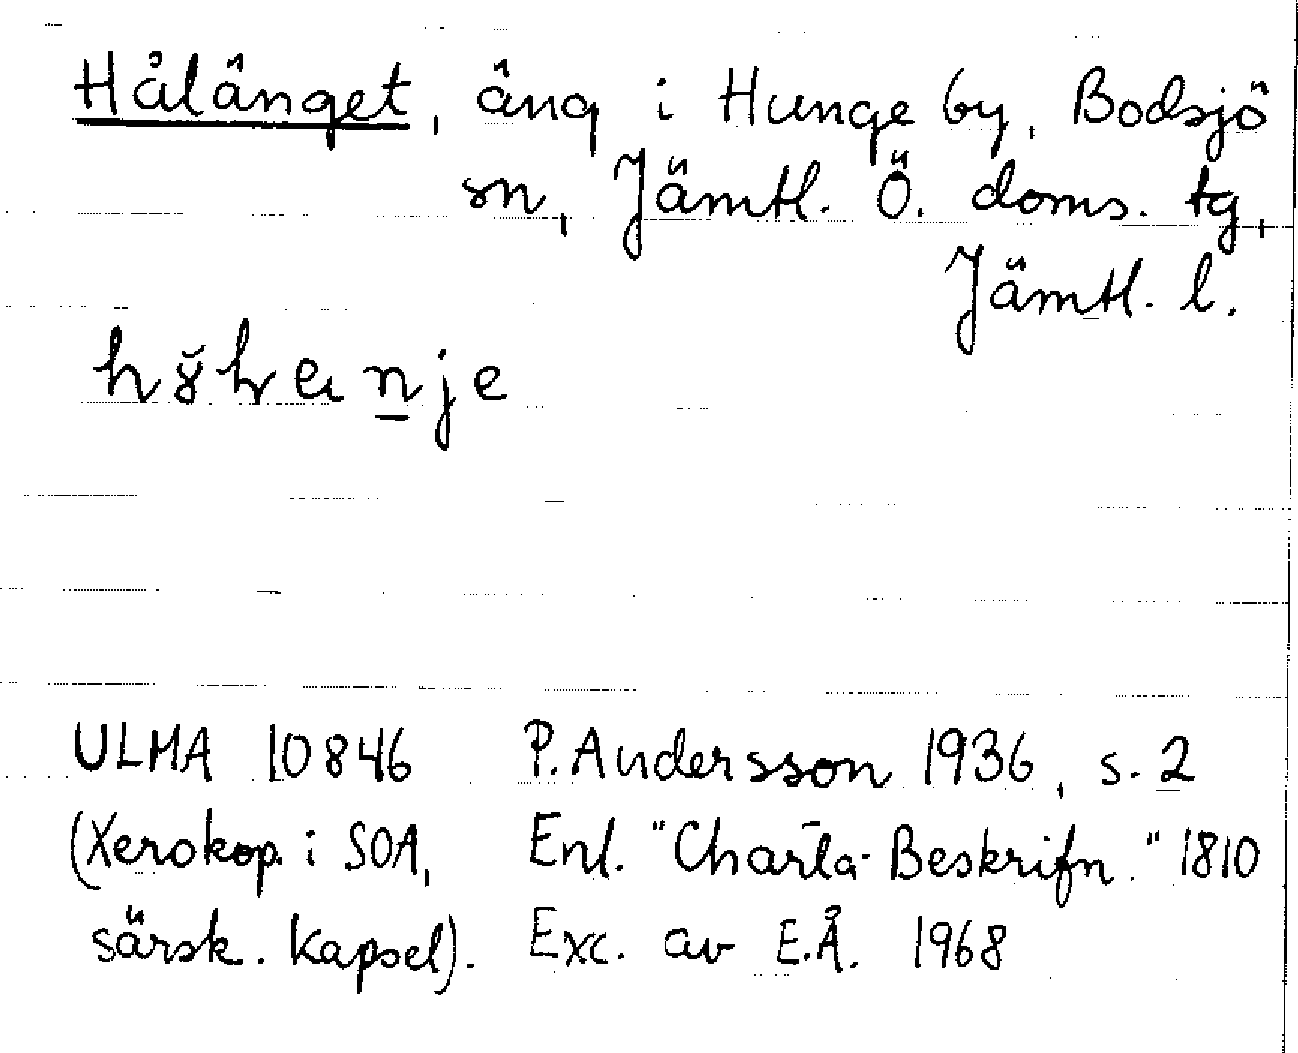 Hålänget, äng i Hunge by, Bodsjö
sn, Jämtl. Ö. doms. tg,
Jämtl. l.
ULMA 10846 P. Andersson 1936, s. 2
(Xerokop. i SOA, Enl. "Charta-Beskrifn." 1810
särsk. kapsel). Exc. av E.Å. 1968